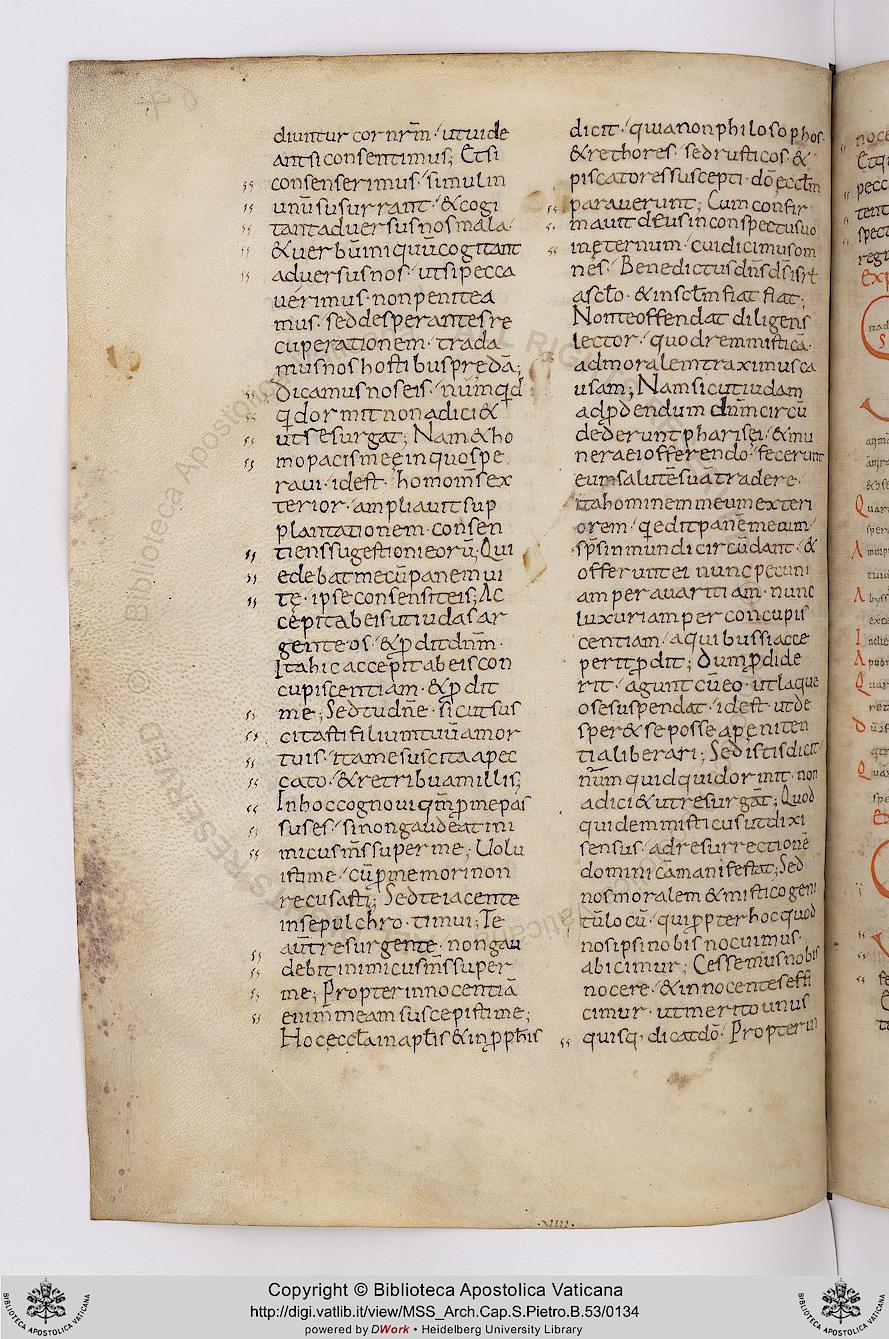 diuntur cor nr̄m · ut uide
ant si consentimus; Et si
consenserimus · simul in
unū susurrant · & cogi
tant aduersus nos mala ·
& uerbū iniquū cogitant
aduersus nos · ut si pecca
uerimus · non penitea
mus · sed desperantes re
cuperationem · trada
mus nos hostibus predā;
Dicamus nos eis · nūmqd
qi dormit non adici&
ut resurgat; Nam & ho
mo pacis meę in quo spe
raui · id est · homo m̄s ex
terior · ampliauit sup
plantationem · consen
tiens sugestioni eorū; Qui
edebat mecū panem ui
tę · ipse consensit eis; Ac
cepit ab eis ut iudas ar
genteos · & ꝑdit dn̄m ·
Ita hic accepit ab eis con
cupiscentiam · & ꝑdit
me; Sed tu dn̄e · sicut sus
citasti filium tuū a mor
tuis · ita me suscita a pec
cato · & retribuam illis;
In hoc cognoui qm̄ ꝑ me pas
sus es · si non gaudeat ini
micus m̄s super me; Uolu
isti me · cū ꝑ me mori non
recusasti; Sed te iacente
in sepulchro · timui; Te
aūt resurgente · non gau
debit inimicus m̄s super
me; Propter innocentiā
enim meam suscepisti me;
Hoc eccl̄a in apl̄is & in ꝓph̄is
dicit · quia non philosophos ·
& rethores · sed rusticos · &
piscatores suscepti · dō eccl̄m
parauerunt; Cum confir
mauit deus in conspectu suo
in ęternum · cui dicimus om
nes · Benedictus dn̄s d̄s isrt
a sc̄lo · & in sc̄lm fiat fiat;
Non te offendat diligens
lector · quod rem misticā ·
ad moralem traximus ca
usam; Nam sicut iudam
ad ꝑdendum dn̄m circū
dederunt pharisei · & mu
nera ei offerendo · fecerunt
eum salutē suā tradere ·
ita hominem meum exteri
orem · qi edit panē meum ·
sp̄s inmundi circūdant · &
offerunt ei nunc pecuni
am per auaritiam · nunc
luxuriam per concupis
centiam · a quibus si acce
perit ꝑdit; Dum ꝑdide
rit · agunt cū eo · ut laque
o se suspendat · id est · ut de
sper& se posse a peniten
tia liberari; Sed istis dicit
nūm quid qui dormit · non
adici& ut resurgāt; Quod
quidem misticus ut dixi
sensus · ad resurrectionē
domini cā manifestat; Sed
nos moralem & mistico geni
tū locū · qui ꝓpter hoc quod
nos ipsi nobis nocuimus ·
abicimur; Cessemus nobis
nocere · & innocentes effi
cimur · ut merito unus
quisq; dicat dō · Propter in
·XIIII·
Copyright © Biblioteca Apostolica Vaticana
http://digi.vatlib.it/view/MSS_Arch.Cap.S.Pietro.B.53/0134
powered by DWork • Heidelberg University Library